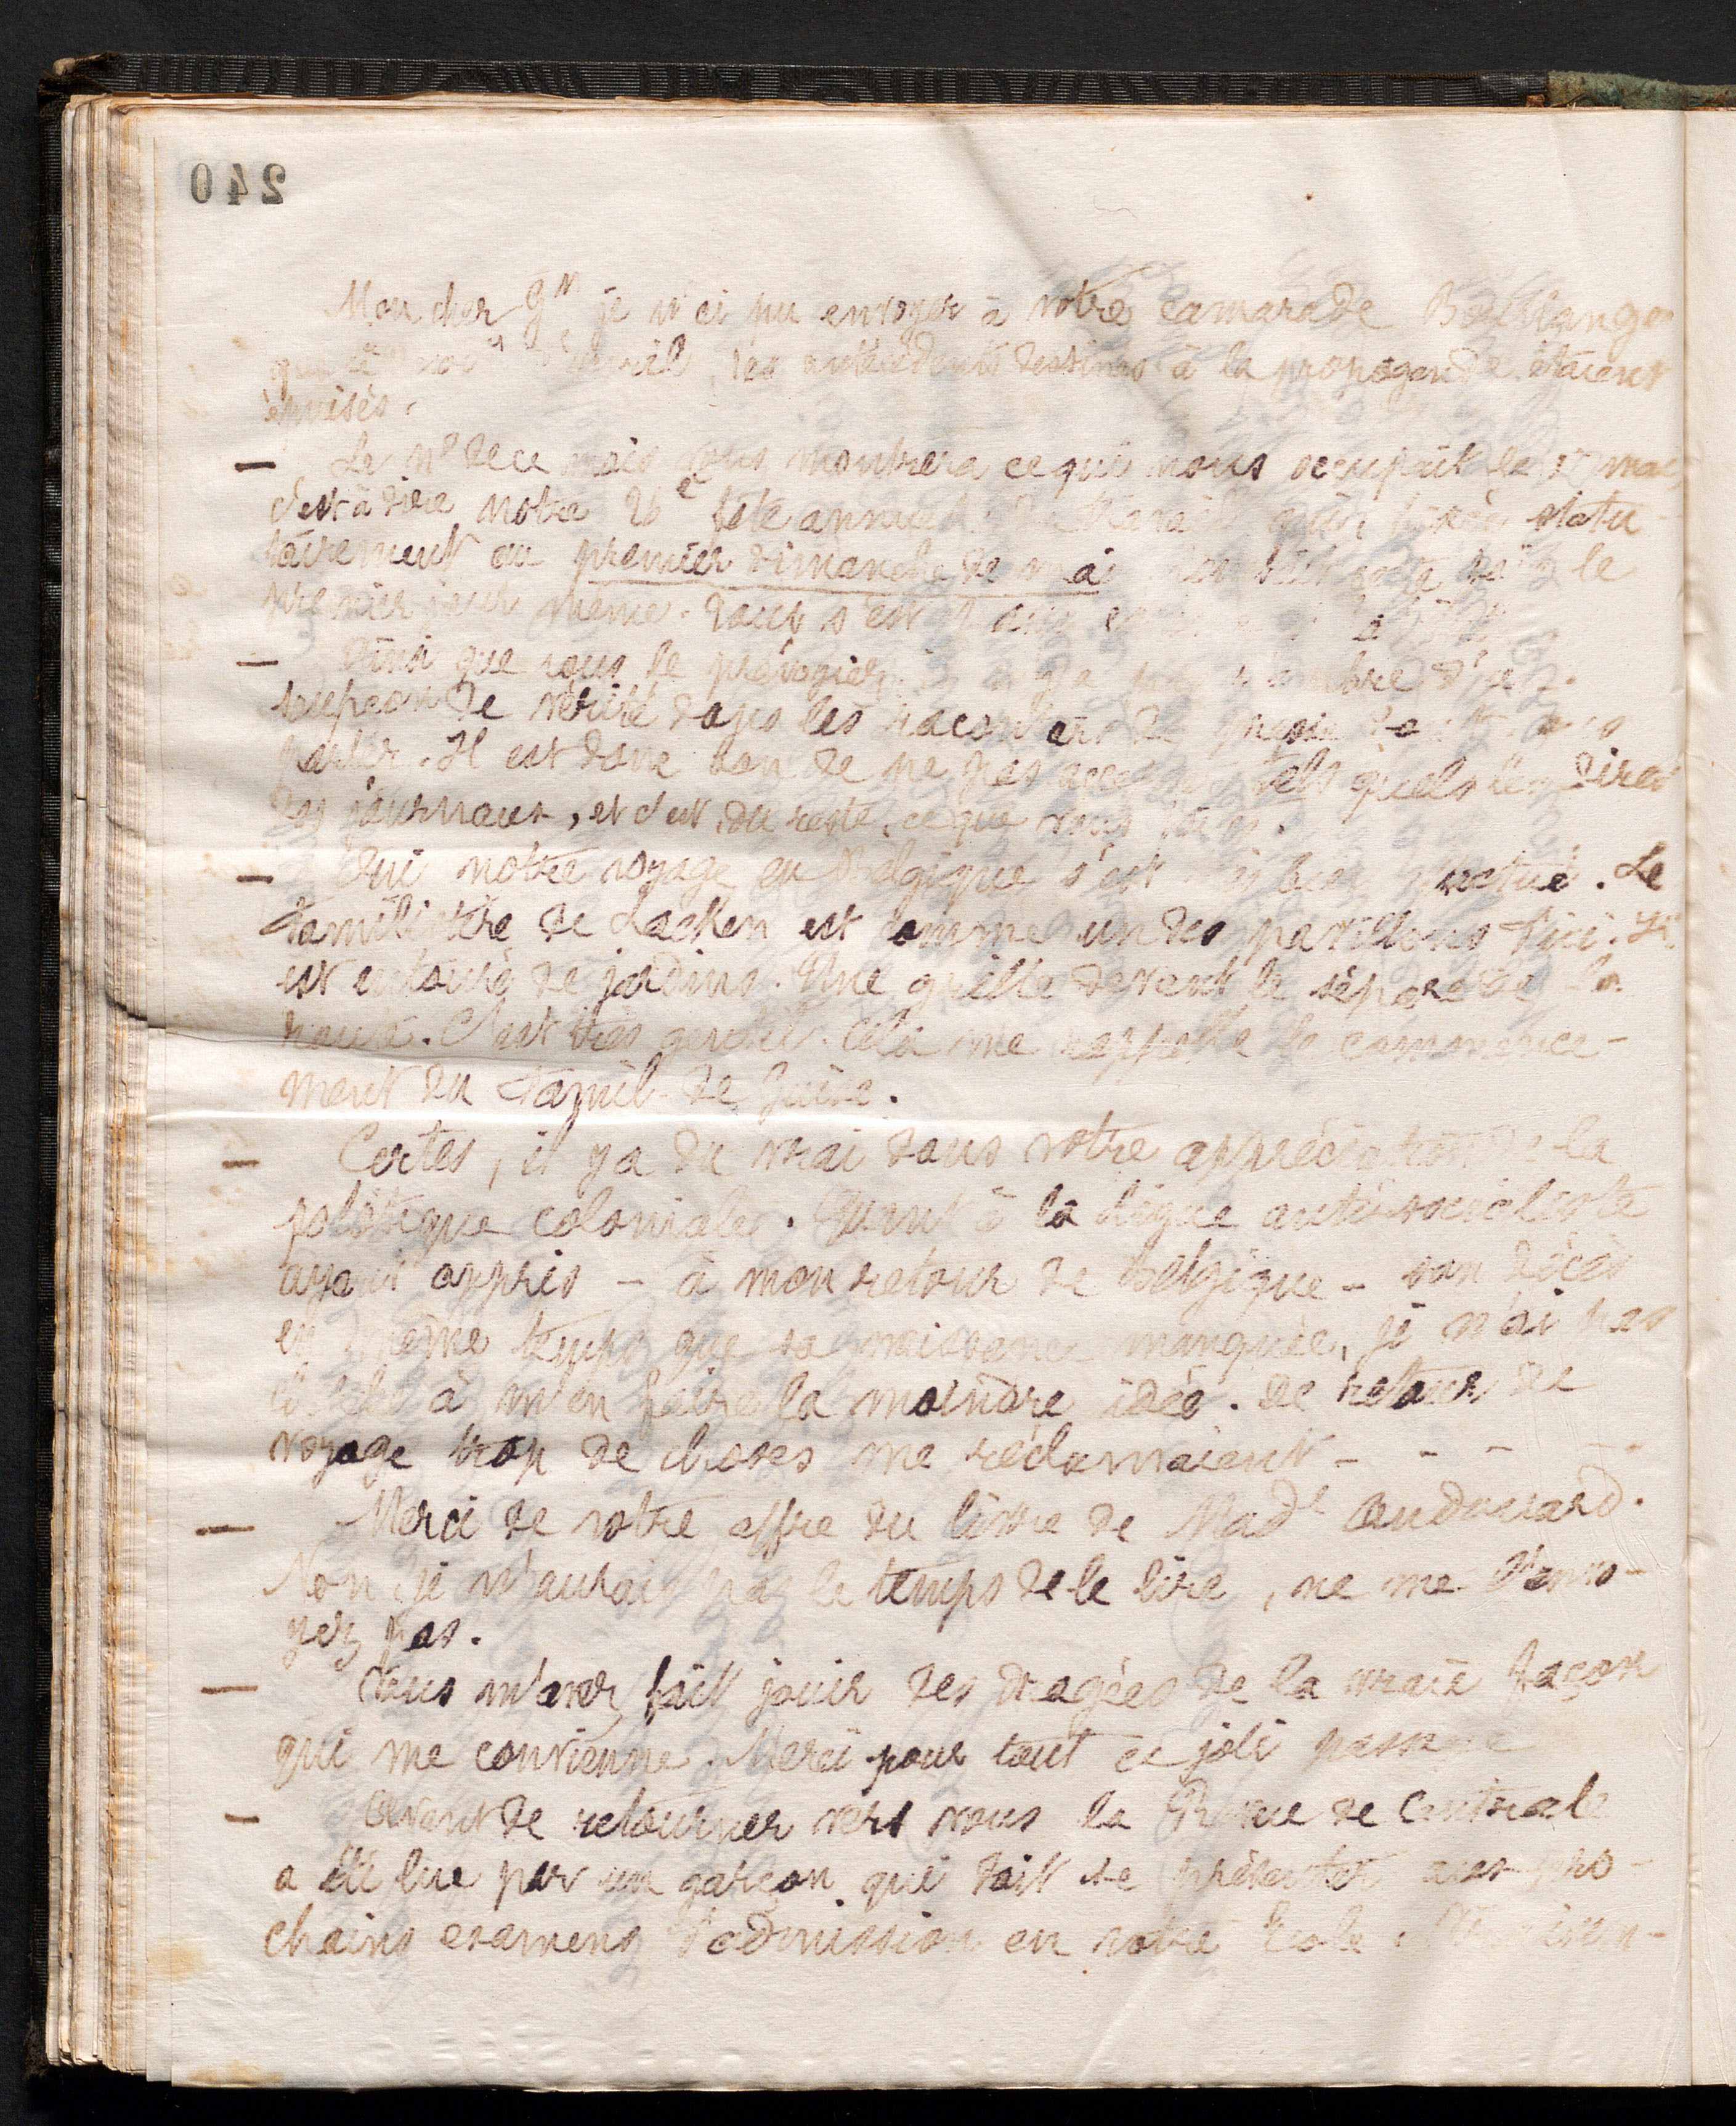 240
Mon cher Gn je n'ai pu envoyer à votre camarade Boulanger
que le d'avril, les antécédents destinés à la propagande étaient
épuisés.
— Le no de ce mois vous montrera ce qui nous occupait le 1er mai,
c'est à dire notre fête annuelle du travail qui, fixée statu-
tairement au premier dimanche de mai le
premier jour même. Tout s'est
— Ainsi que vous le présagiez, il n'y a pas l'ombre d'un
soupçon de vérité dans les racontars de presse
parlez. Il est donc bon de ne pas tels quels les dires
des journaux, et c'est, du reste, ce que vous faites.
— Oui notre voyage en Belgique s'est très bien effectué. Le
familistère de Laeken est comme un des pavillons d'ici. Il
est entouré de jardins. Une grille devant le sépare de la
route. C'est très gentil. Cela me rappelle le commence-
ment du Famil. de Guise.
— Certes, il y a du vrai dans votre appréciation de la
politique coloniale. Quant à la ligue anti-socialiste
ayant appris - à mon retour de Belgique - son décès
en même temps que sa naissance manquée, je n'ai pas
cherché à m'en faire la moindre idée. De retour de
voyage trop de choses me réclamaient - - - -
— Merci de votre offre du livre de Made Audouard.
Non, je n'aurais pas le temps de le lire, ne me l'envo-
yez pas.
— Vous m'avez fait jouir des dragées de la vraie façon
qui me convienne. Merci pour tout ce joli passage
— Avant de retourner vers vous la Revue de Centrale
a été lue par un garçon qui doit se présenter aux pro-
chains examens d'admission en votre Ecole.